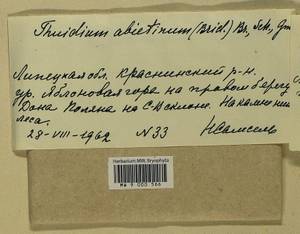 Thuidium abietinum (Brid.) Br., Sch., Gm
Липецкая обл. Краснинский р-н.
ур. Яблоновая гора на правом берегу
Дона Поляна на С. склоне. На камнючнии
леса.
28-VIII-1962 N 33
Herbarium MW, Bryophyta
MW 9 000 566